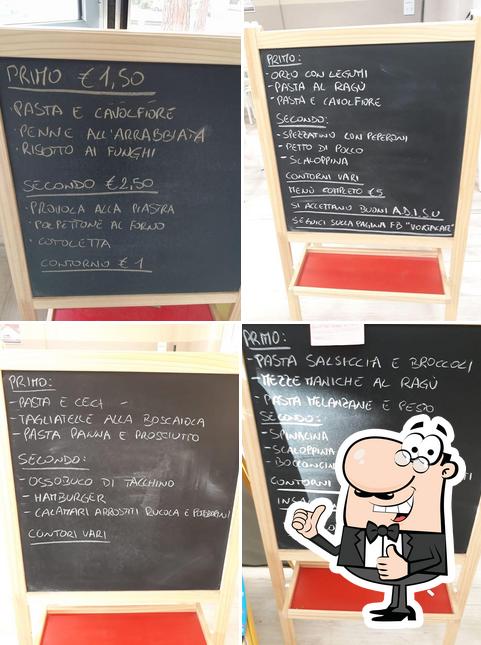 PRIMO €1,50
· PASTA E CAVOLFIORE
· PENNE ALL'ARRABBIATA
· RISOTTO AI FUNGHI
SECONDO €2,50
· PROVOLA ALLA PIASTRA
· POLPETTONE AL FORNO
· COTOLETTA
CONTORNO €1
PRIMO:
- ORZO CON LEGUMI
- PASTA AL RAGÙ
- PASTA E CAVOLFIORE
SECONDO:
- SPEZZATINO CON PEPERONI
- PETTO DI POLLO
- SCALOPPINA
CONTORNI VARI
MENÙ COMPLETO €5
SI ACCETTANO BUONI A.DI.S.U
SEGUICI SULLA PAGINA FB "VOKTACAFE"
PRIMO:
- PASTA E CECI -
- TAGLIATELLE ALLA BOSCAIOLA
- PASTA PANNA E PROSCIUTTO
SECONDO:
- OSSOBUCO DI TACCHINO
- HAMBURGER
- CALAMARI ARROSTITI RUCOLA E POMODORINI
CONTORI VARI
PRIMO:
- PASTA SALSICCIA E BROCCOLI
- MEZZE MANICHE AL RAGÙ
- PASTA MELANZANE E PESTO
SECONDO:
- SPINACINA
- SCALOPPINA
- BOCCONCIN
CONTORNI
INSA